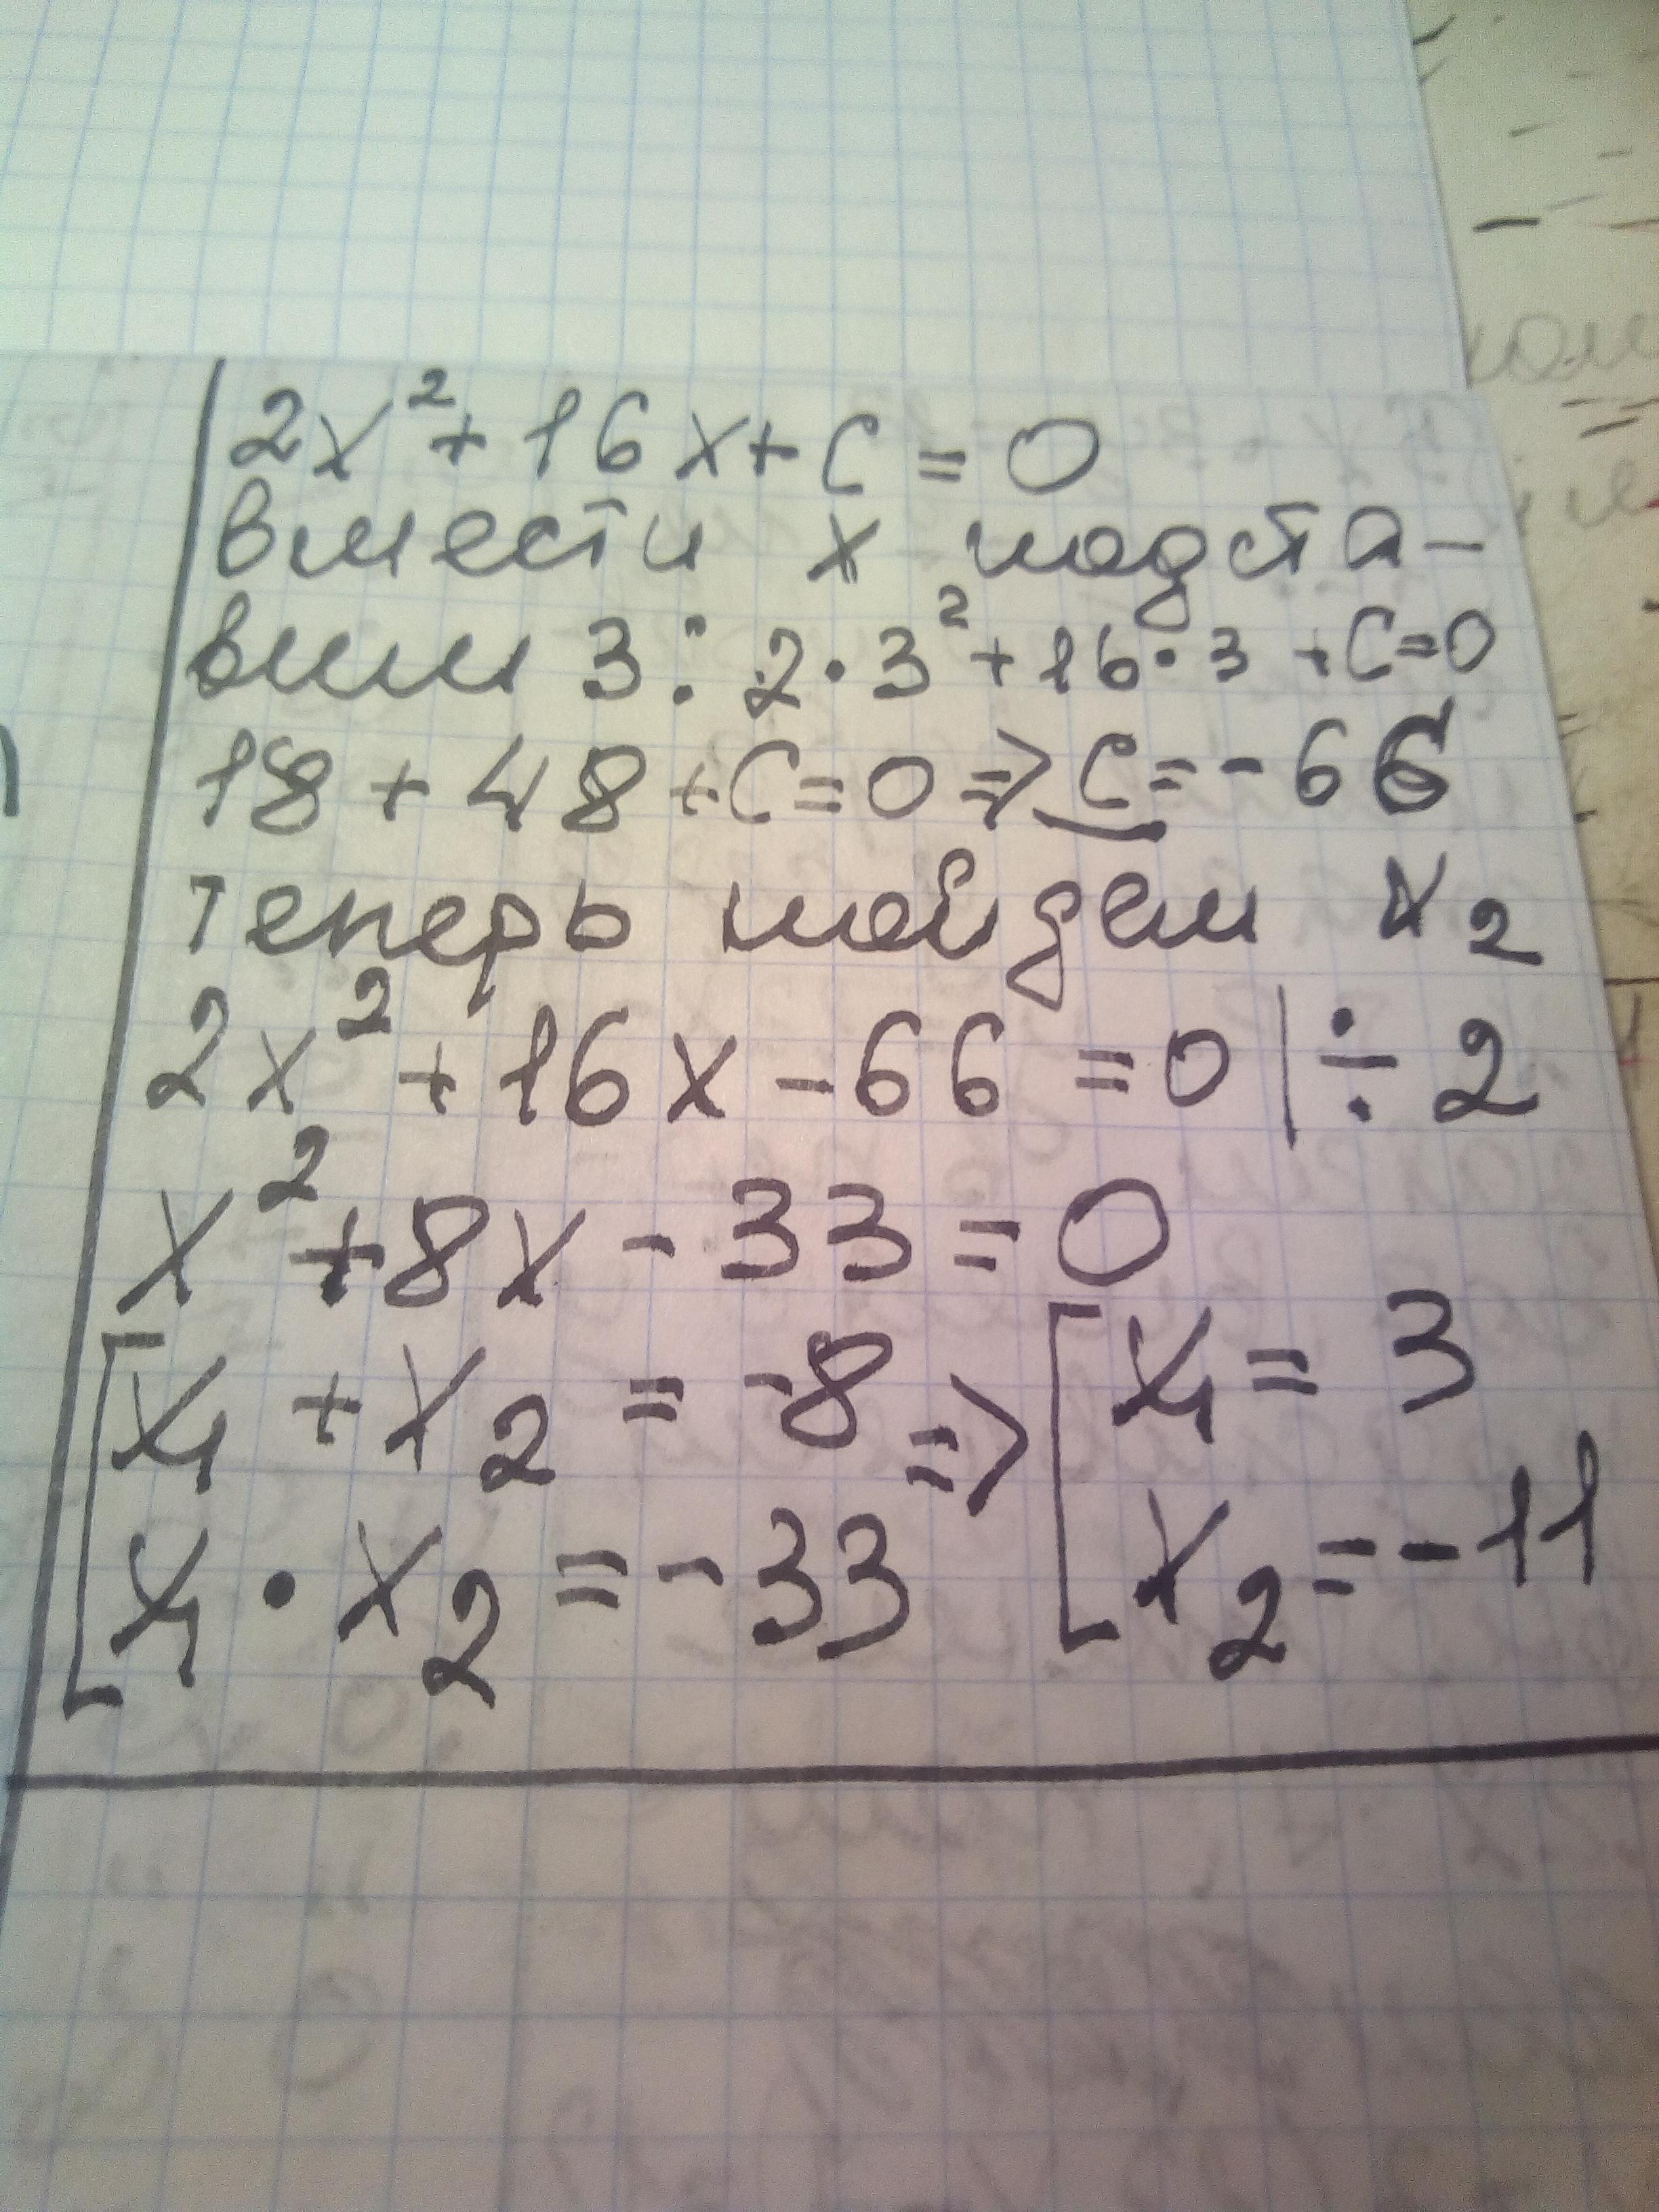 2x² + 16x + c = 0
вмести x подста-
вим 3: 2·3² + 16·3 + c = 0
18 + 48 + c = 0 => c = -66
теперь найдем x₂
2x² + 16x - 66 = 0 | ÷ 2
x² + 8x - 33 = 0
[ x₁ + x₂ = -8 => [ x₁ = 3
x₁ · x₂ = -33 x₂ = -11